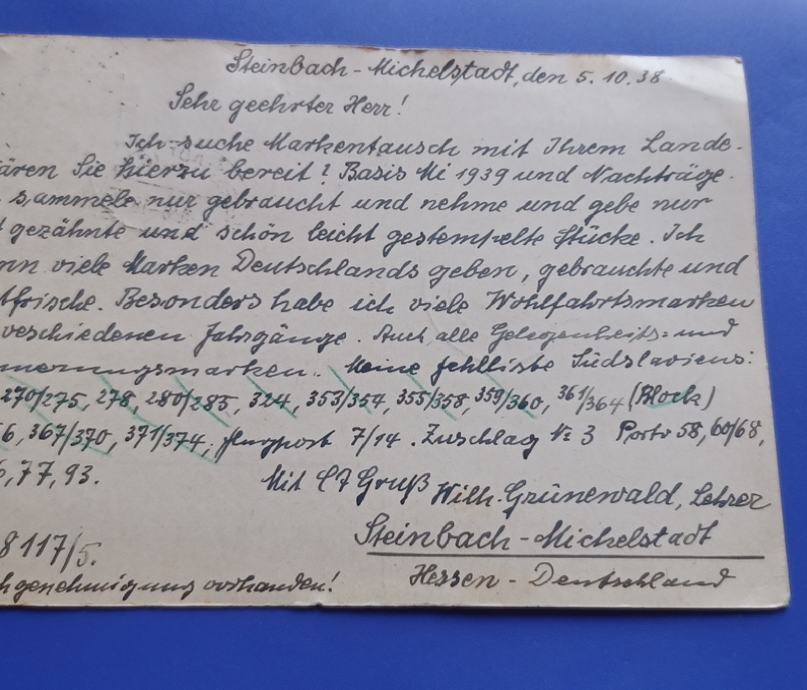 Steinbach-Michelstadt, den 5.10.38
Sehr geehrter Herr!
Ich suche Markentausch mit Ihrem Lande.
ären Sie hierzu bereit? Basis Mi 1939 und Nachträge.
sammele nur gebraucht und nehme und gebe nur
gezähnte und schön leicht gestempelte Stücke. Ich
nn viele Marken Deutschlands geben, gebrauchte und
tfrische. Besonders habe ich viele Wohlfahrtsmarken
veschiedenen Jahrgänge. Auch alle Gelegenheits- und
nerungsmarken. Meine Fehlliste Südslaviens:
270/275, 278, 280/285, 324, 353/354, 355/358, 359/360, 361/364 (Block)
6, 367/370, 371/374, Flugpost 7/14. Zuschlag № 3 Porto 58, 60/68,
,77,93.
Mit Gruß Wilh. Grünewald, Lehrer
Steinbach-Michelstadt
8117/5.
Hessen - Deutschland
hgenehmigung vorhanden!